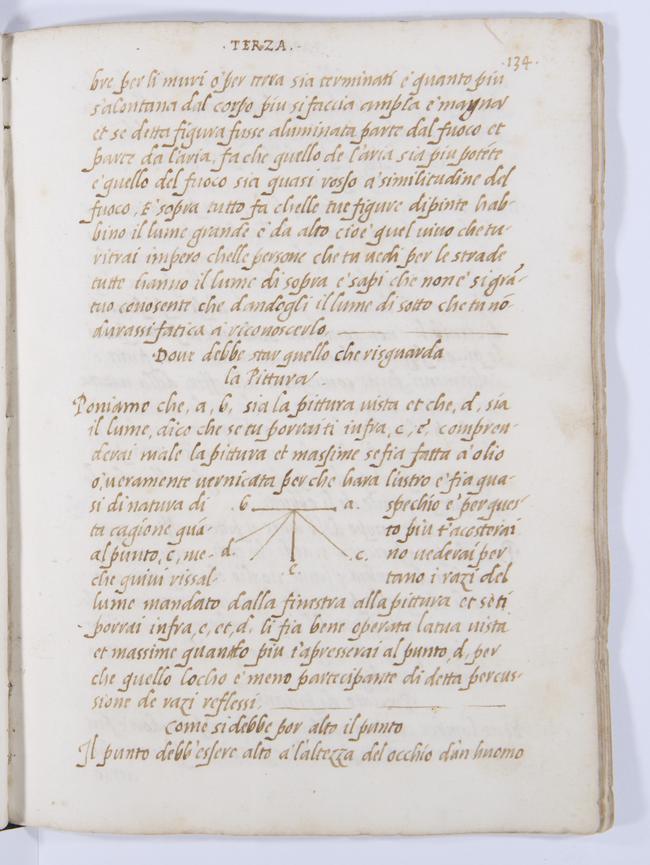 . TERZA .
.134.
bre per li muri o per terra sia terminati e quanto piu
s'alontana dal corpo piu si faccia ampla e magna
et se detta figura fusse aluminata parte dal fuoco et
parte da l'aria, fa che quello de l'aria sia piu potẽte
e quello del fuoco sia quasi rosso a similitudine del
fuoco, E sopra tutto fa chelle tue figure dipinte hab-
bino il lume grande e da alto cioe quel uiuo che tu
ritrai impero chelle persone che tu uedi per le strade
tutte hanno il lume di sopra e sapi che non e si grã
tuo conosente che dandogli il lume di sotto che tu nõ
durassi fatica a riconoscerlo.
Doue debbe star quello che risguarda
la Pittura
Poniamo che, a, b, sia la pittura uista et che, d, sia
il lume, dico che se tu porrai ti infra, c, e, compren-
derai male la pittura et massime se fia fatta a olio
o, ueramente uernicata perche hara lustro e fia qua-
si di natura di .b a. spechio e per ques
ta cagione quã to piu t'acosterai
al punto, c, me- d. c. no uederai per
e
che quiui rissal tano i razi del
lume mandato dalla finestra alla pittura et se ti
porrai infra, e, et, d, li fia bene operata la tua uista
et massime quando piu t'apresserai al punto, d, per
che quello locho e meno partecipante di detta percus-
sione de razi reflessi.
Come si debbe por alto il punto
Il punto debb'essere alto a l'altezza del occhio d'un huomo